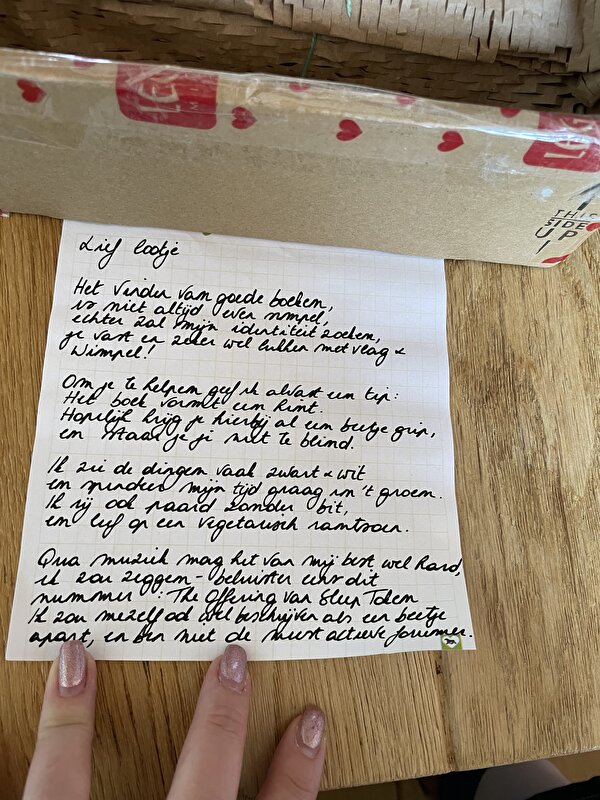 THIS
SIDE
UP
Lief lootje
Het vinden van goede boeken,
is niet altijd even simpel,
echter zal mijn identiteit zoeken,
je vast en zeker wel lukken met vlag &
Wimpel!
Om je te helpen geef ik alvast een tip:
Het boek vormt een hint.
Hopelijk krijg je hierbij al een beetje grip,
en staar je je niet te blind.
Ik zie de dingen vaak zwart & wit
en spendeer mijn tijd graag in 't groen.
Ik rij ook paard zonder bit,
en leef op een vegetarisch rantsoen.
Qua muziek mag het van mij best wel hard,
ik zou zeggen - beluister eens dit
nummer: The Offering van Sleep Token
Ik zou mezelf ook wel beschrijven als een beetje
apart, en ben niet de meest actieve forummer.